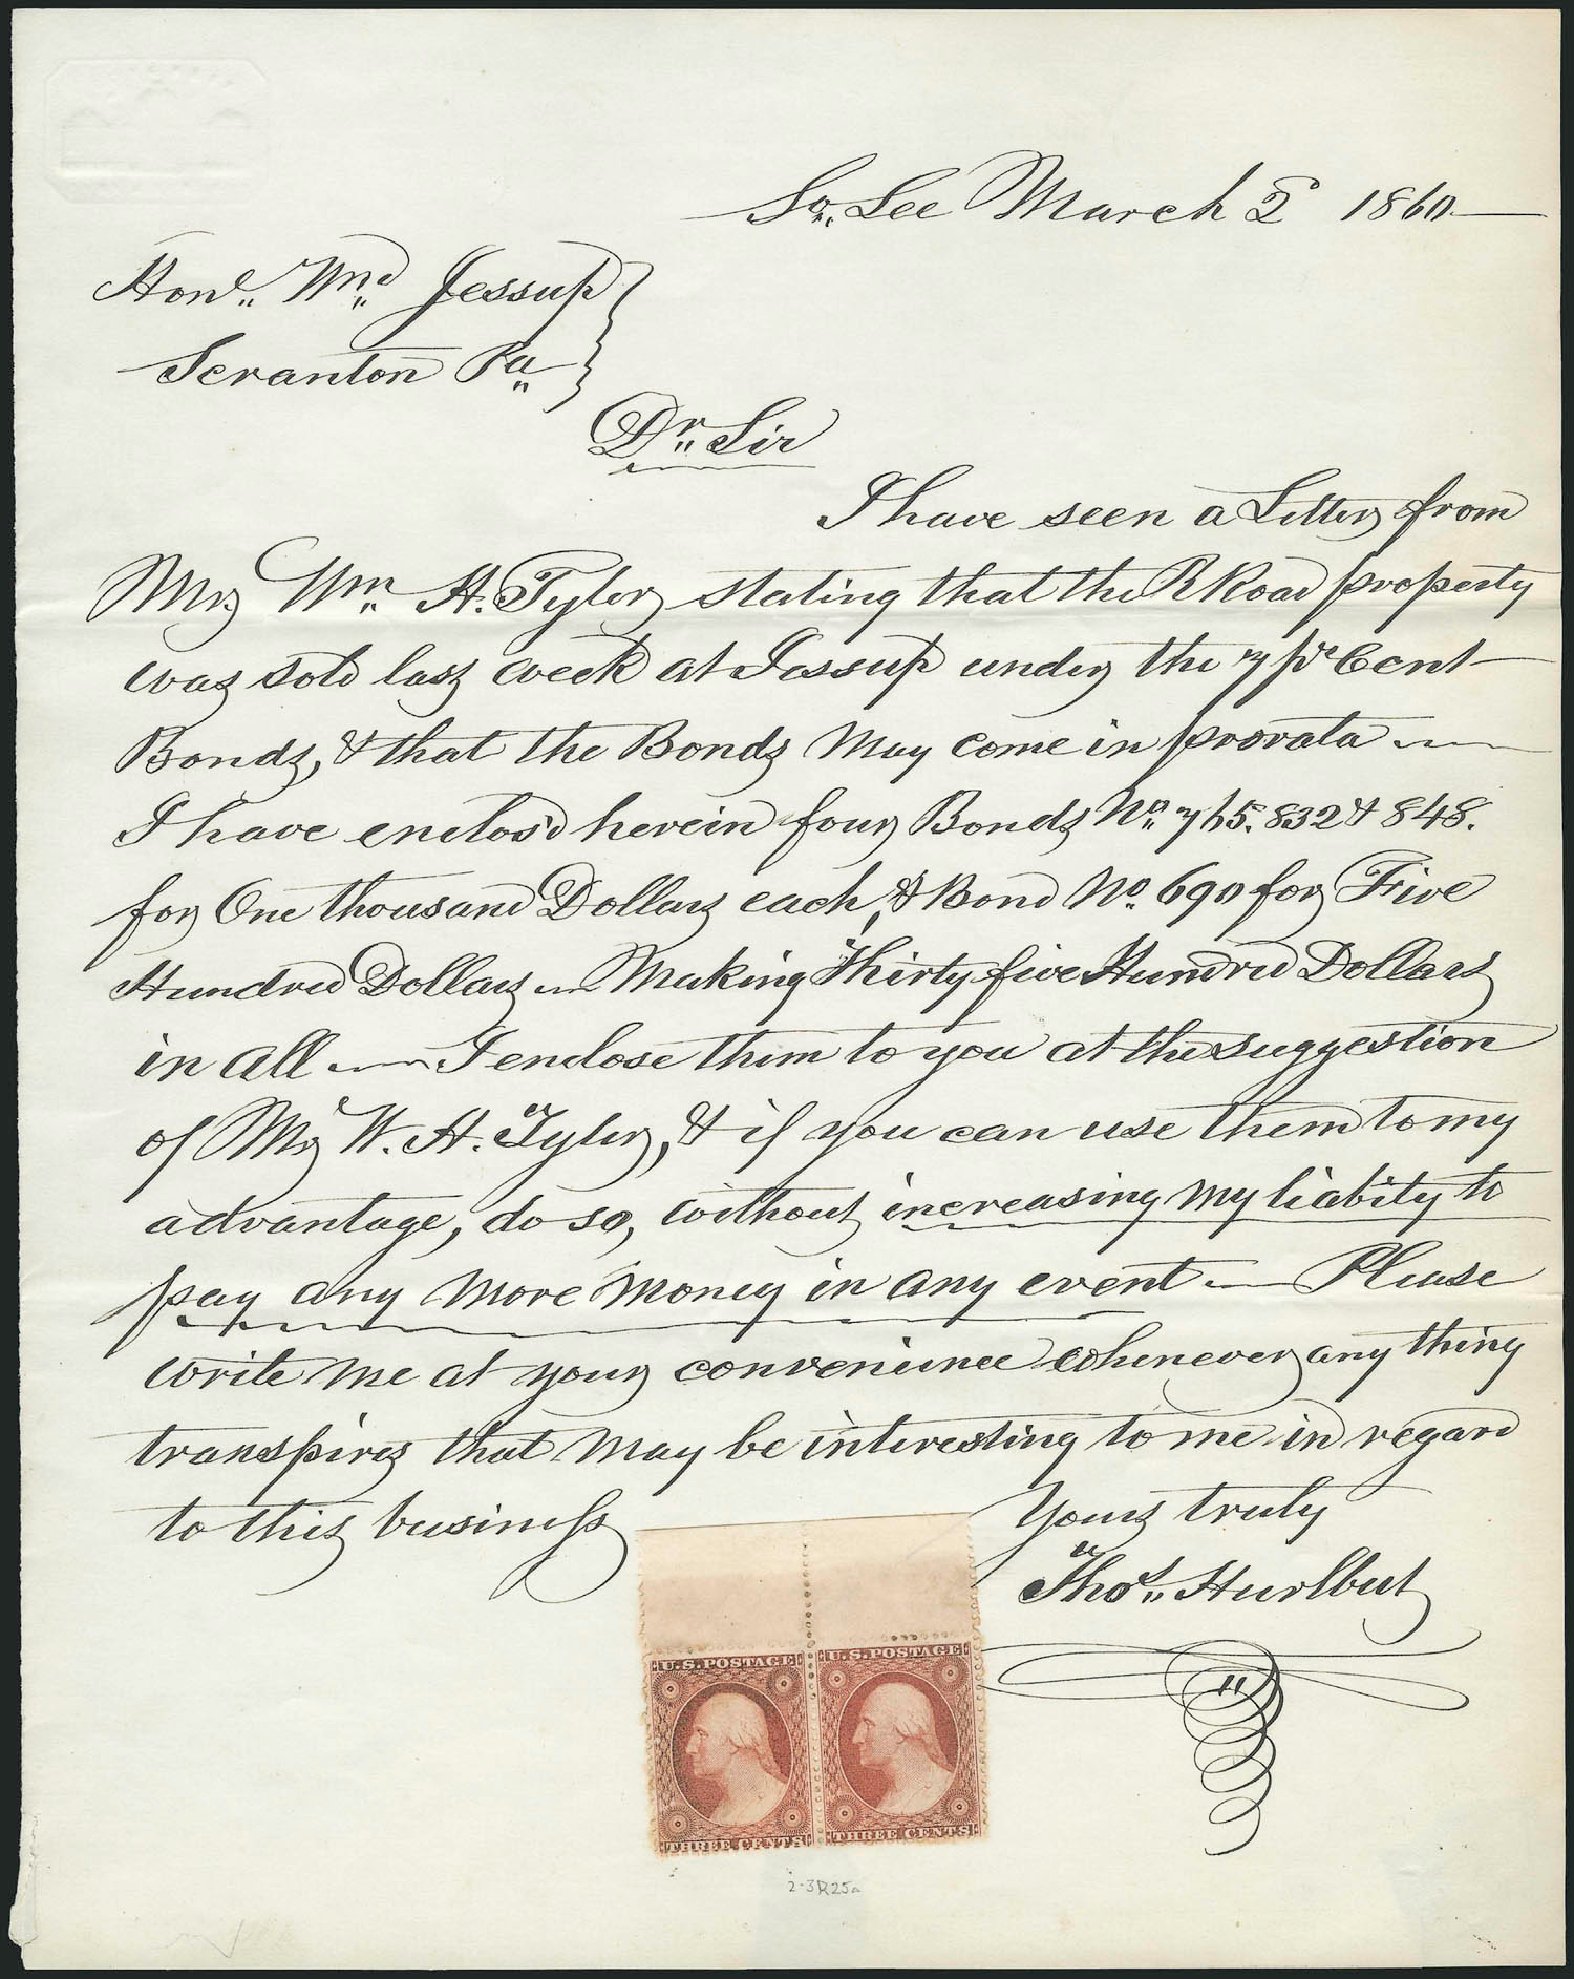 So. Lee March 2d 1860
Honle. Wm. Jessup
Scranton Pa
Dr. Sir
I have seen a Letter from
Mr Wm. H. Tyler stating that the R Road property
was sold last week at Jessup under the 7 pr Cent
Bonds, & that the Bonds may come in prorata
I have enclos'd herein four Bonds No. 765. 832 & 848.
for One thousand Dollars each, & Bond No. 690 for Five
Hundred Dollars Making Thirty five Hundred Dollars
in all I enclose them to you at the suggestion
of Mr W. H. Tyler, & if you can use them to my
advantage, do so, without increasing my liability to
pay any more money in any event Please
write me at your convenience whenever any thing
transpires that may be interesting to me in regard
to this business
Yours truly
Thos. Hurlbut
U.S. POSTAGE U.S. POSTAGE
THREE CENTS THREE CENTS
2-3R25a